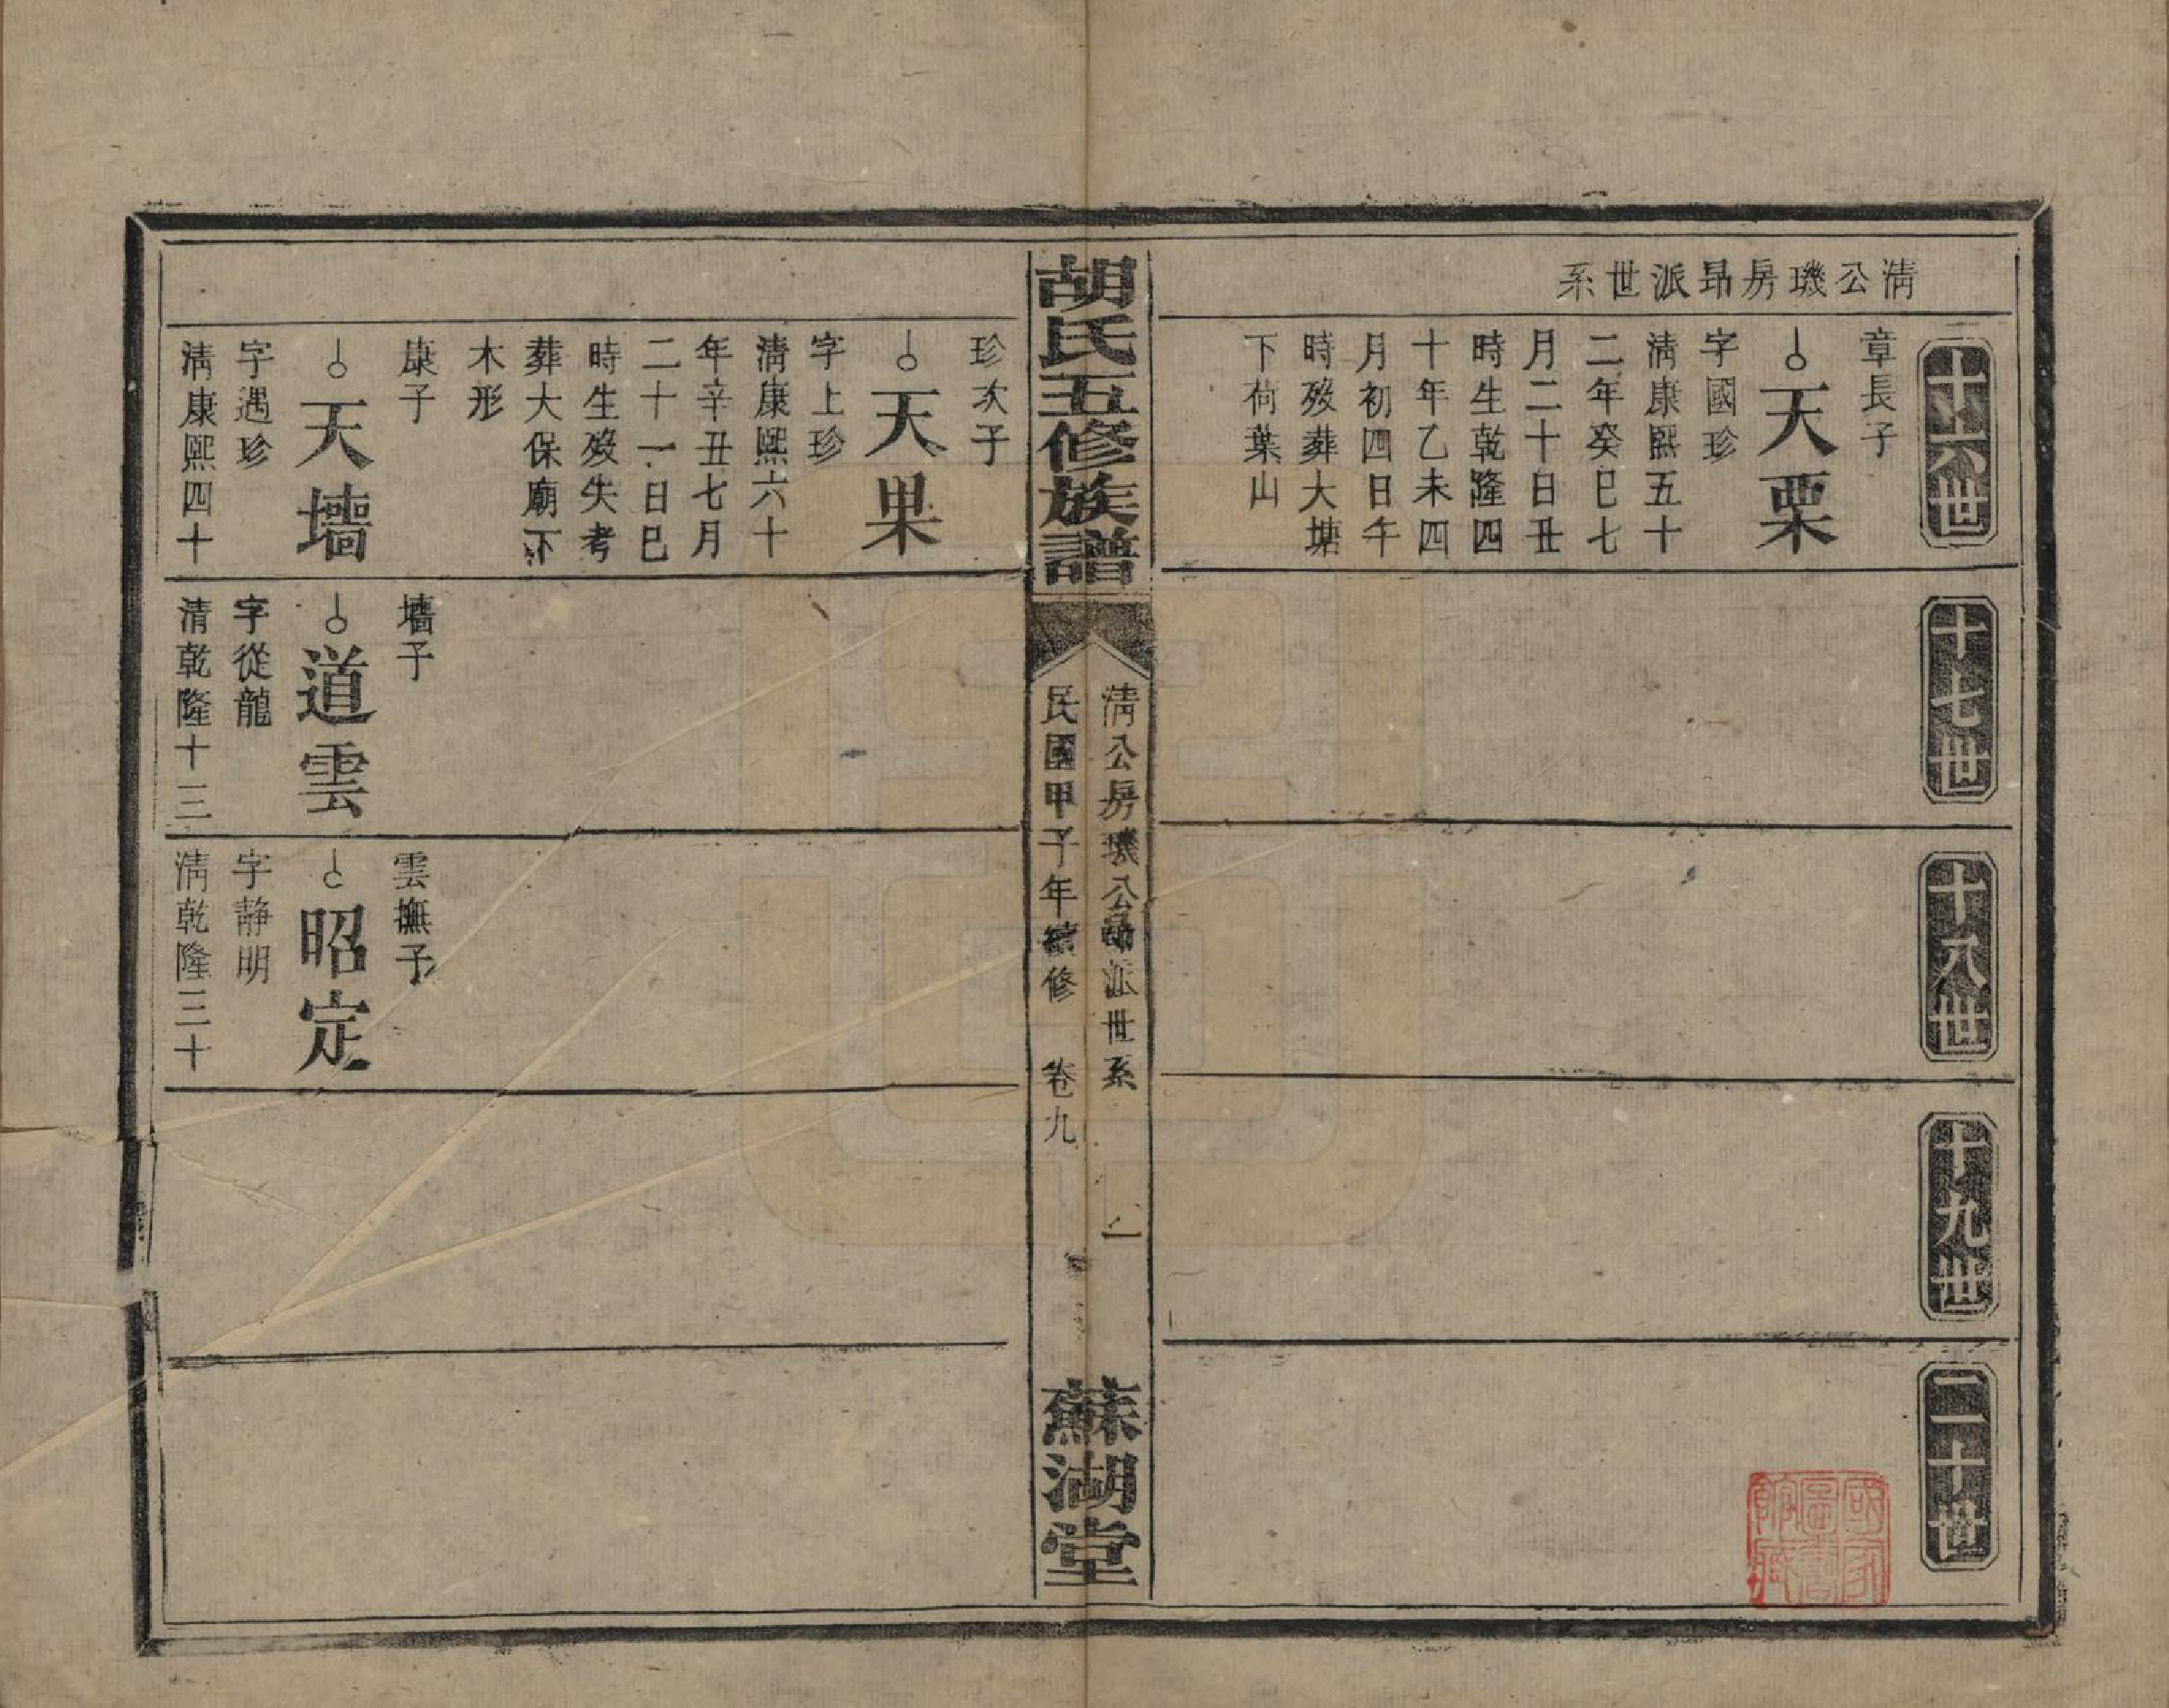 清公璣房昂派世系
十六世
章長子
天栗
字國珍
清康熙五十
二年癸巳七
月二十日丑
時生乾隆四
十年乙未四
月初四日午
時殁葬大塘
下荷葉山
十七世
十八世
十九世
二十世
國家圖書館藏
胡氏五修族譜
清公房璣公昂派世系
民國甲子年續修 卷九
一
蘇湖堂
珍次子
天果
字上珍
清康熙六十
年辛丑七月
二十一日巳
時生殁失考
葬大保廟下
木形
康子
天墻
字遇珍
清康熙四十
墻子
道雲
字從龍
清乾隆十三
雲撫子
昭定
字靜明
清乾隆三十